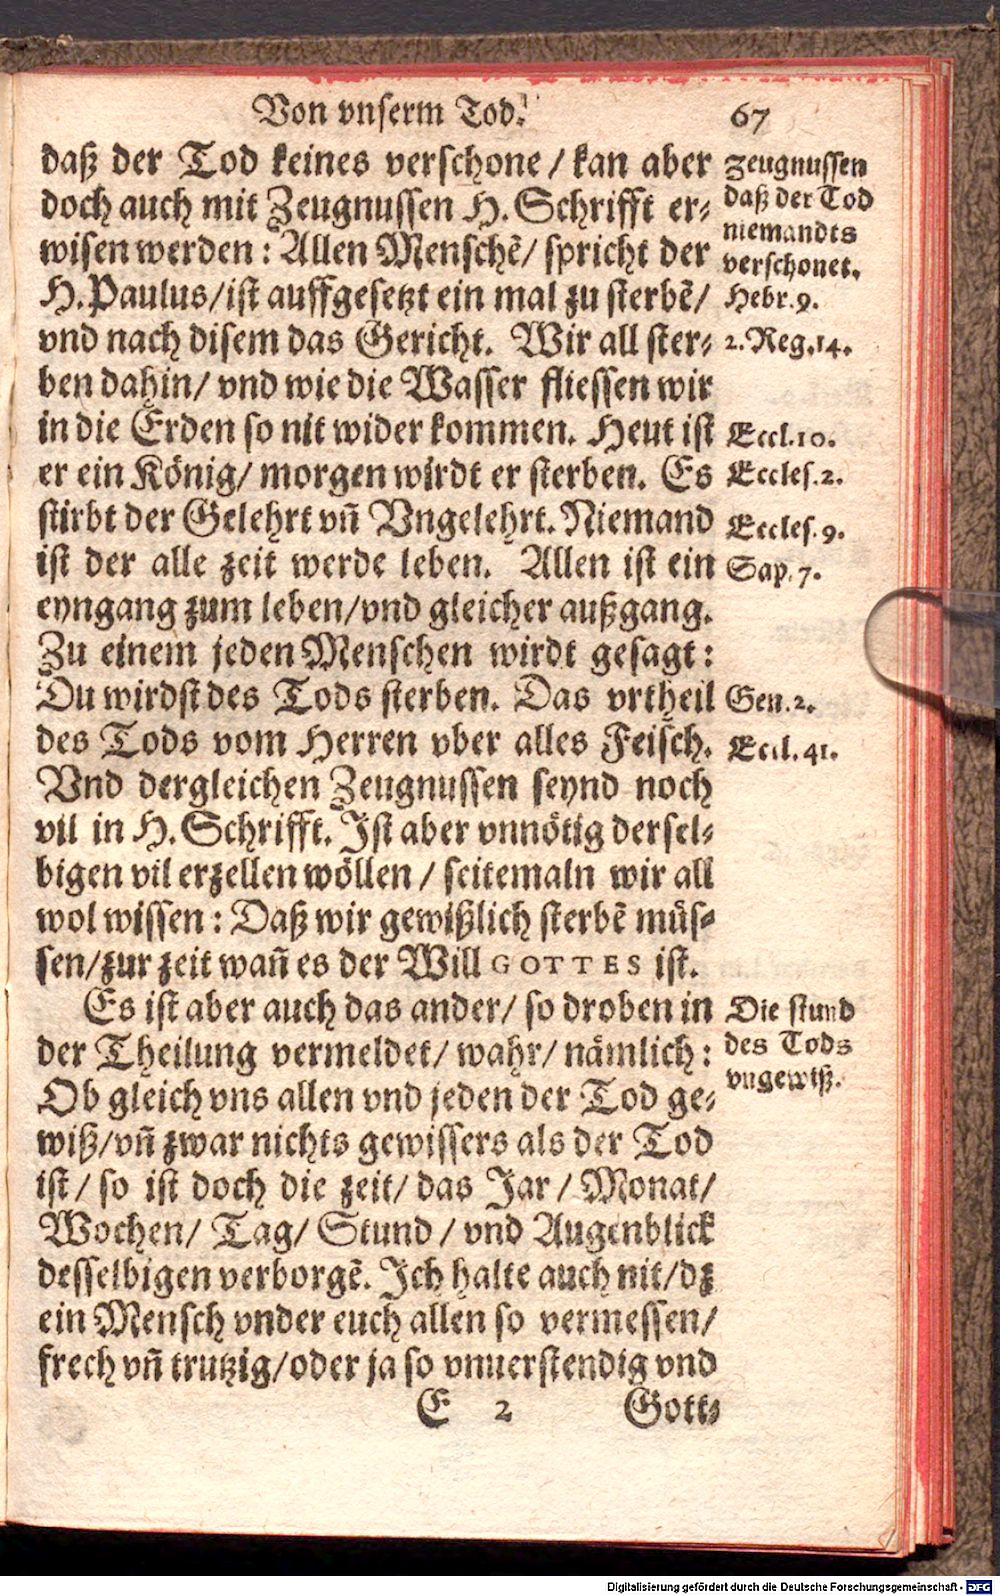 Von vnserm Tod. 67
daß der Tod keines verschone / kan aber
doch auch mit Zeugnussen H. Schrifft er-
wisen werden : Allen Menschẽ / spricht der
H. Paulus / ist auffgesetzt ein mal zu sterbẽ /
vnd nach disem das Gericht. Wir all ster-
ben dahin / vnd wie die Wasser fliessen wir
in die Erden so nit wider kommen. Heut ist
er ein König / morgen wirdt er sterben. Es
stirbt der Gelehrt vñ Vngelehrt. Niemand
ist der alle zeit werde leben. Allen ist ein
eyngang zum leben / vnd gleicher außgang.
Zu einem jeden Menschen wirdt gesagt :
Du wirdst des Tods sterben. Das vrtheil
des Tods vom Herren vber alles Feisch.
Vnd dergleichen Zeugnussen seynd noch
vil in H. Schrifft. Ist aber vnnötig dersel-
bigen vil erzellen wöllen / seitemaln wir all
wol wissen : Daß wir gewißlich sterbẽ müs-
sen / zur zeit wañ es der Will GOTTES ist.
Es ist aber auch das ander / so droben in
der Theilung vermeldet / wahr / nämlich :
Ob gleich vns allen vnd jeden der Tod ge-
wiß / vñ zwar nichts gewissers als der Tod
ist / so ist doch die zeit / das Jar / Monat /
Wochen / Tag / Stund / vnd Augenblick
desselbigen verborgẽ. Ich halte auch nit / dz
ein Mensch vnder euch allen so vermessen /
frech vñ trutzig / oder ja so vnuerstendig vnd
E 2 Gott-
Zeugnussen
daß der Tod
niemandts
verschonet.
Hebr. 9.
2. Reg. 14.
Eccl. 10.
Eccles. 2.
Eccles. 9.
Sap. 7.
Gen. 2.
Eccl. 41.
Die stund
des Tods
vngewiß.
Digitalisierung gefördert durch die Deutsche Forschungsgemeinschaft - DFG